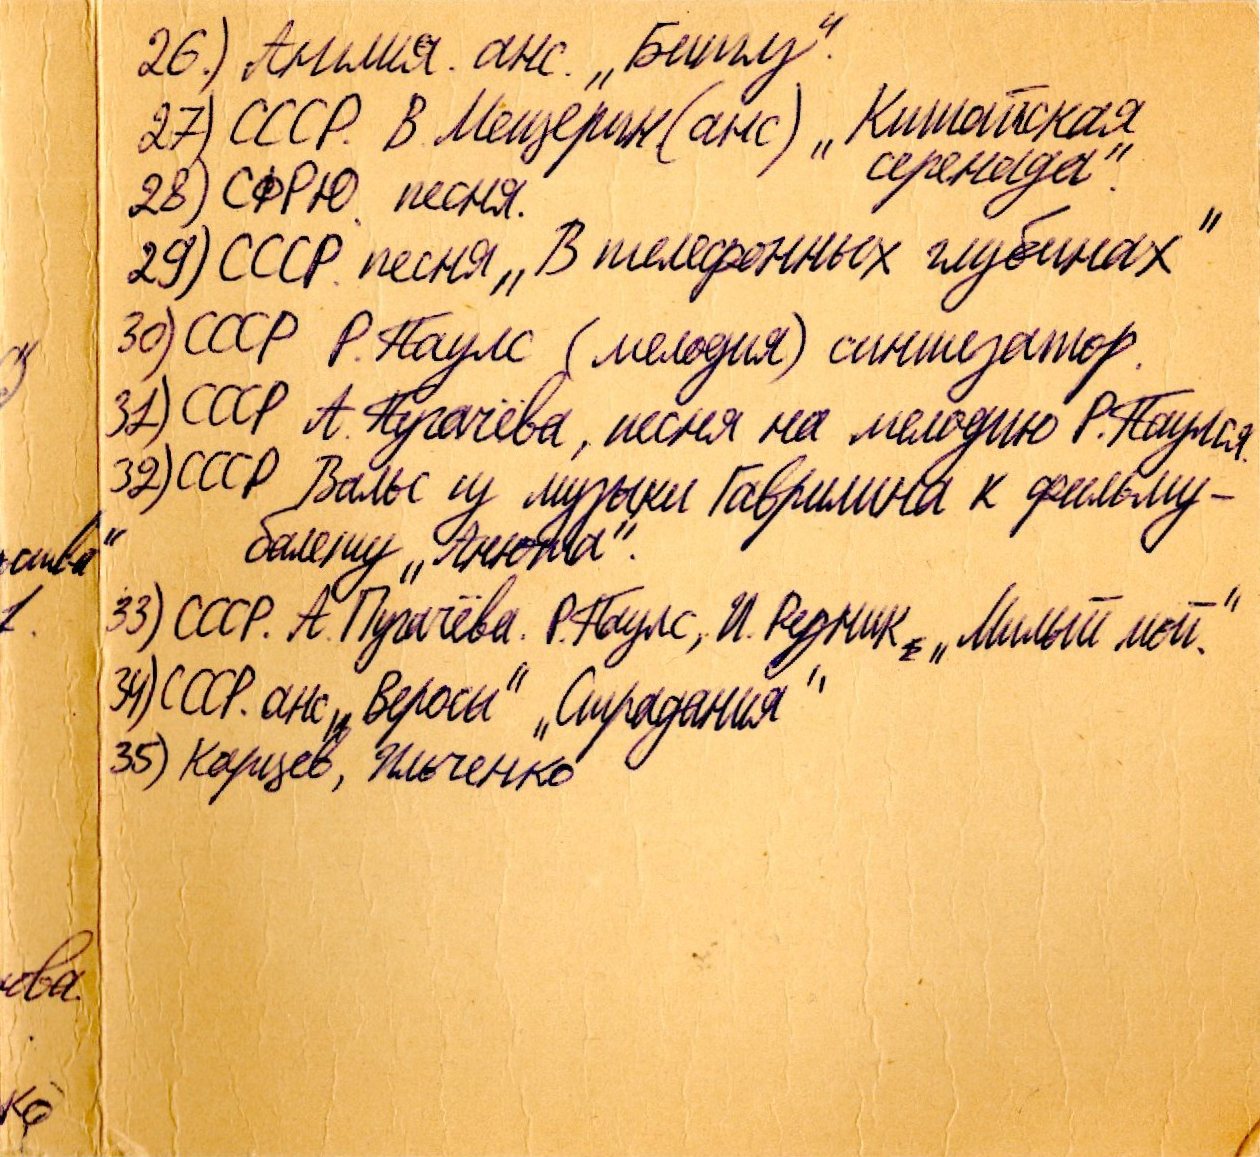 26.) Англия. анс. „Битлз".
27) СССР. В. Мещерин (анс) „Китайская
серенада".
28) СФРЮ. песня.
29) СССР. песня „В телефонных глубинах"
30) СССР Р. Паулс (мелодия) синтезатор.
31) СССР А. Пугачёва, песня на мелодию Р. Паулся.
32) СССР Вальс из музыки Гаврилина к фильму-
балету „Анюта".
33) СССР. А. Пугачёва. Р. Паулс, И. Резник „Милый мой."
34) СССР. анс „Верасы" „Страдания"
35) Карцев, Ильченко
ова.